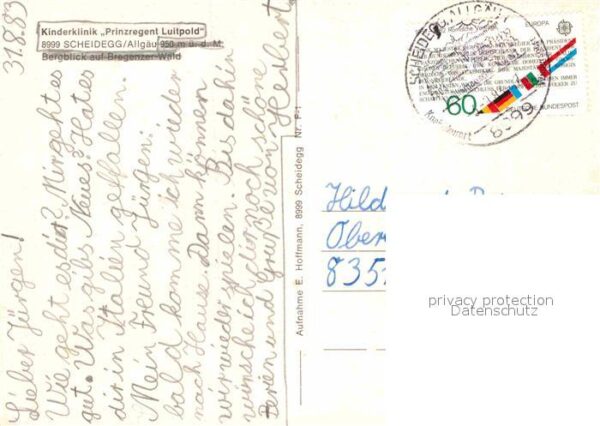 31.8.83
Kinderklinik „Prinzregent Luitpold"
8999 SCHEIDEGG/Allgäu 950 m ü. d. M.
Bergblick auf Bregenzer-Wald
Lieber Jürgen!
Wie geht es dir? Mir geht es
gut. Was gibts Neues? Hat es
dir in Italien gefhallen.
Mein Freund Jürgen!
bald komme ich wieder
nach Hause. Dann können
wir wieder spielen. Bis dahin
wünsche ich dir noch schöne
Ferien und Grüße von Hubert
Aufnahme E. Hoffmann, 8999 Scheidegg Nr. F-1
SCHEIDEGG, ALLGÄU
8999
EUROPA
60
DEUTSCHE BUNDESPOST
Hild
Ober
835
privacy protection
Datenschutz